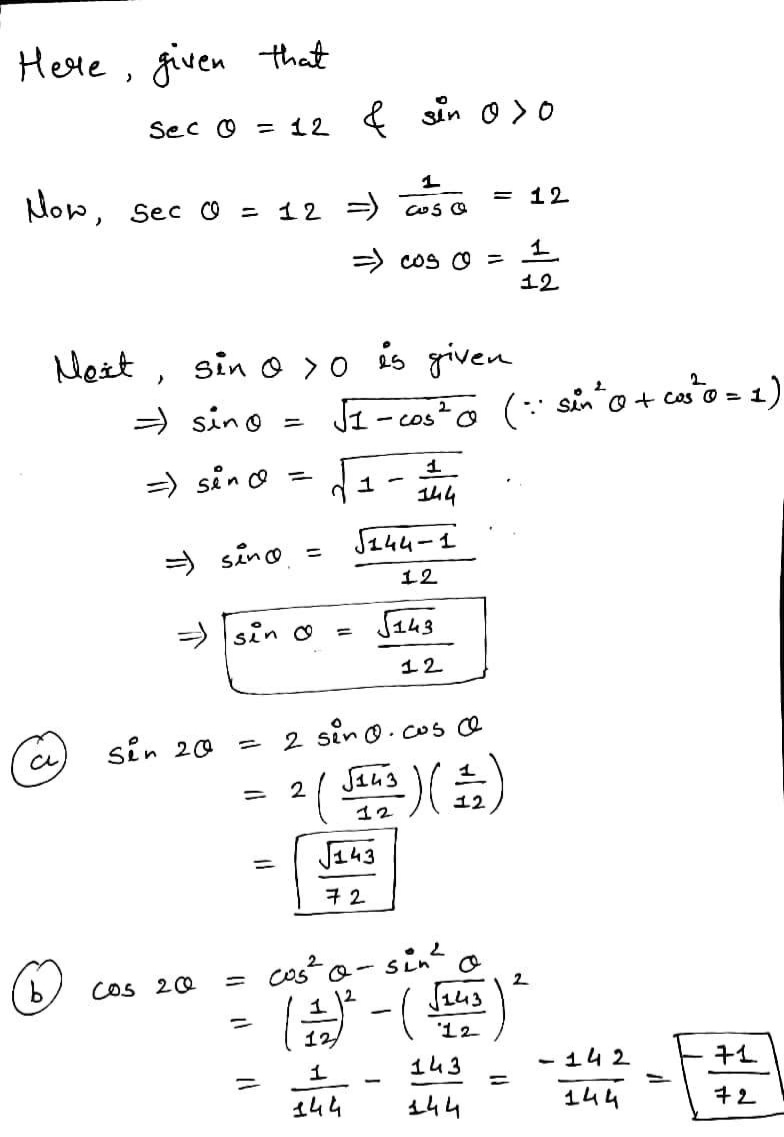 Here, given that
sec θ = 12 & sin θ > 0
Now, sec θ = 12 ⇒ 1/cos θ = 12
⇒ cos θ = 1/12
Next, sin θ > 0 is given
⇒ sin θ = √(1 - cos²θ) (∵ sin²θ + cos²θ = 1)
⇒ sin θ = √(1 - 1/144)
⇒ sin θ = √(144-1)/12
⇒ sin θ = √143/12
(a) sin 2θ = 2 sin θ . cos θ
= 2 (√143/12)(1/12)
= √143/72
(b) cos 2θ = cos²θ - sin²θ
= (1/12)² - (√143/12)²
= 1/144 - 143/144 = -142/144 = -71/72